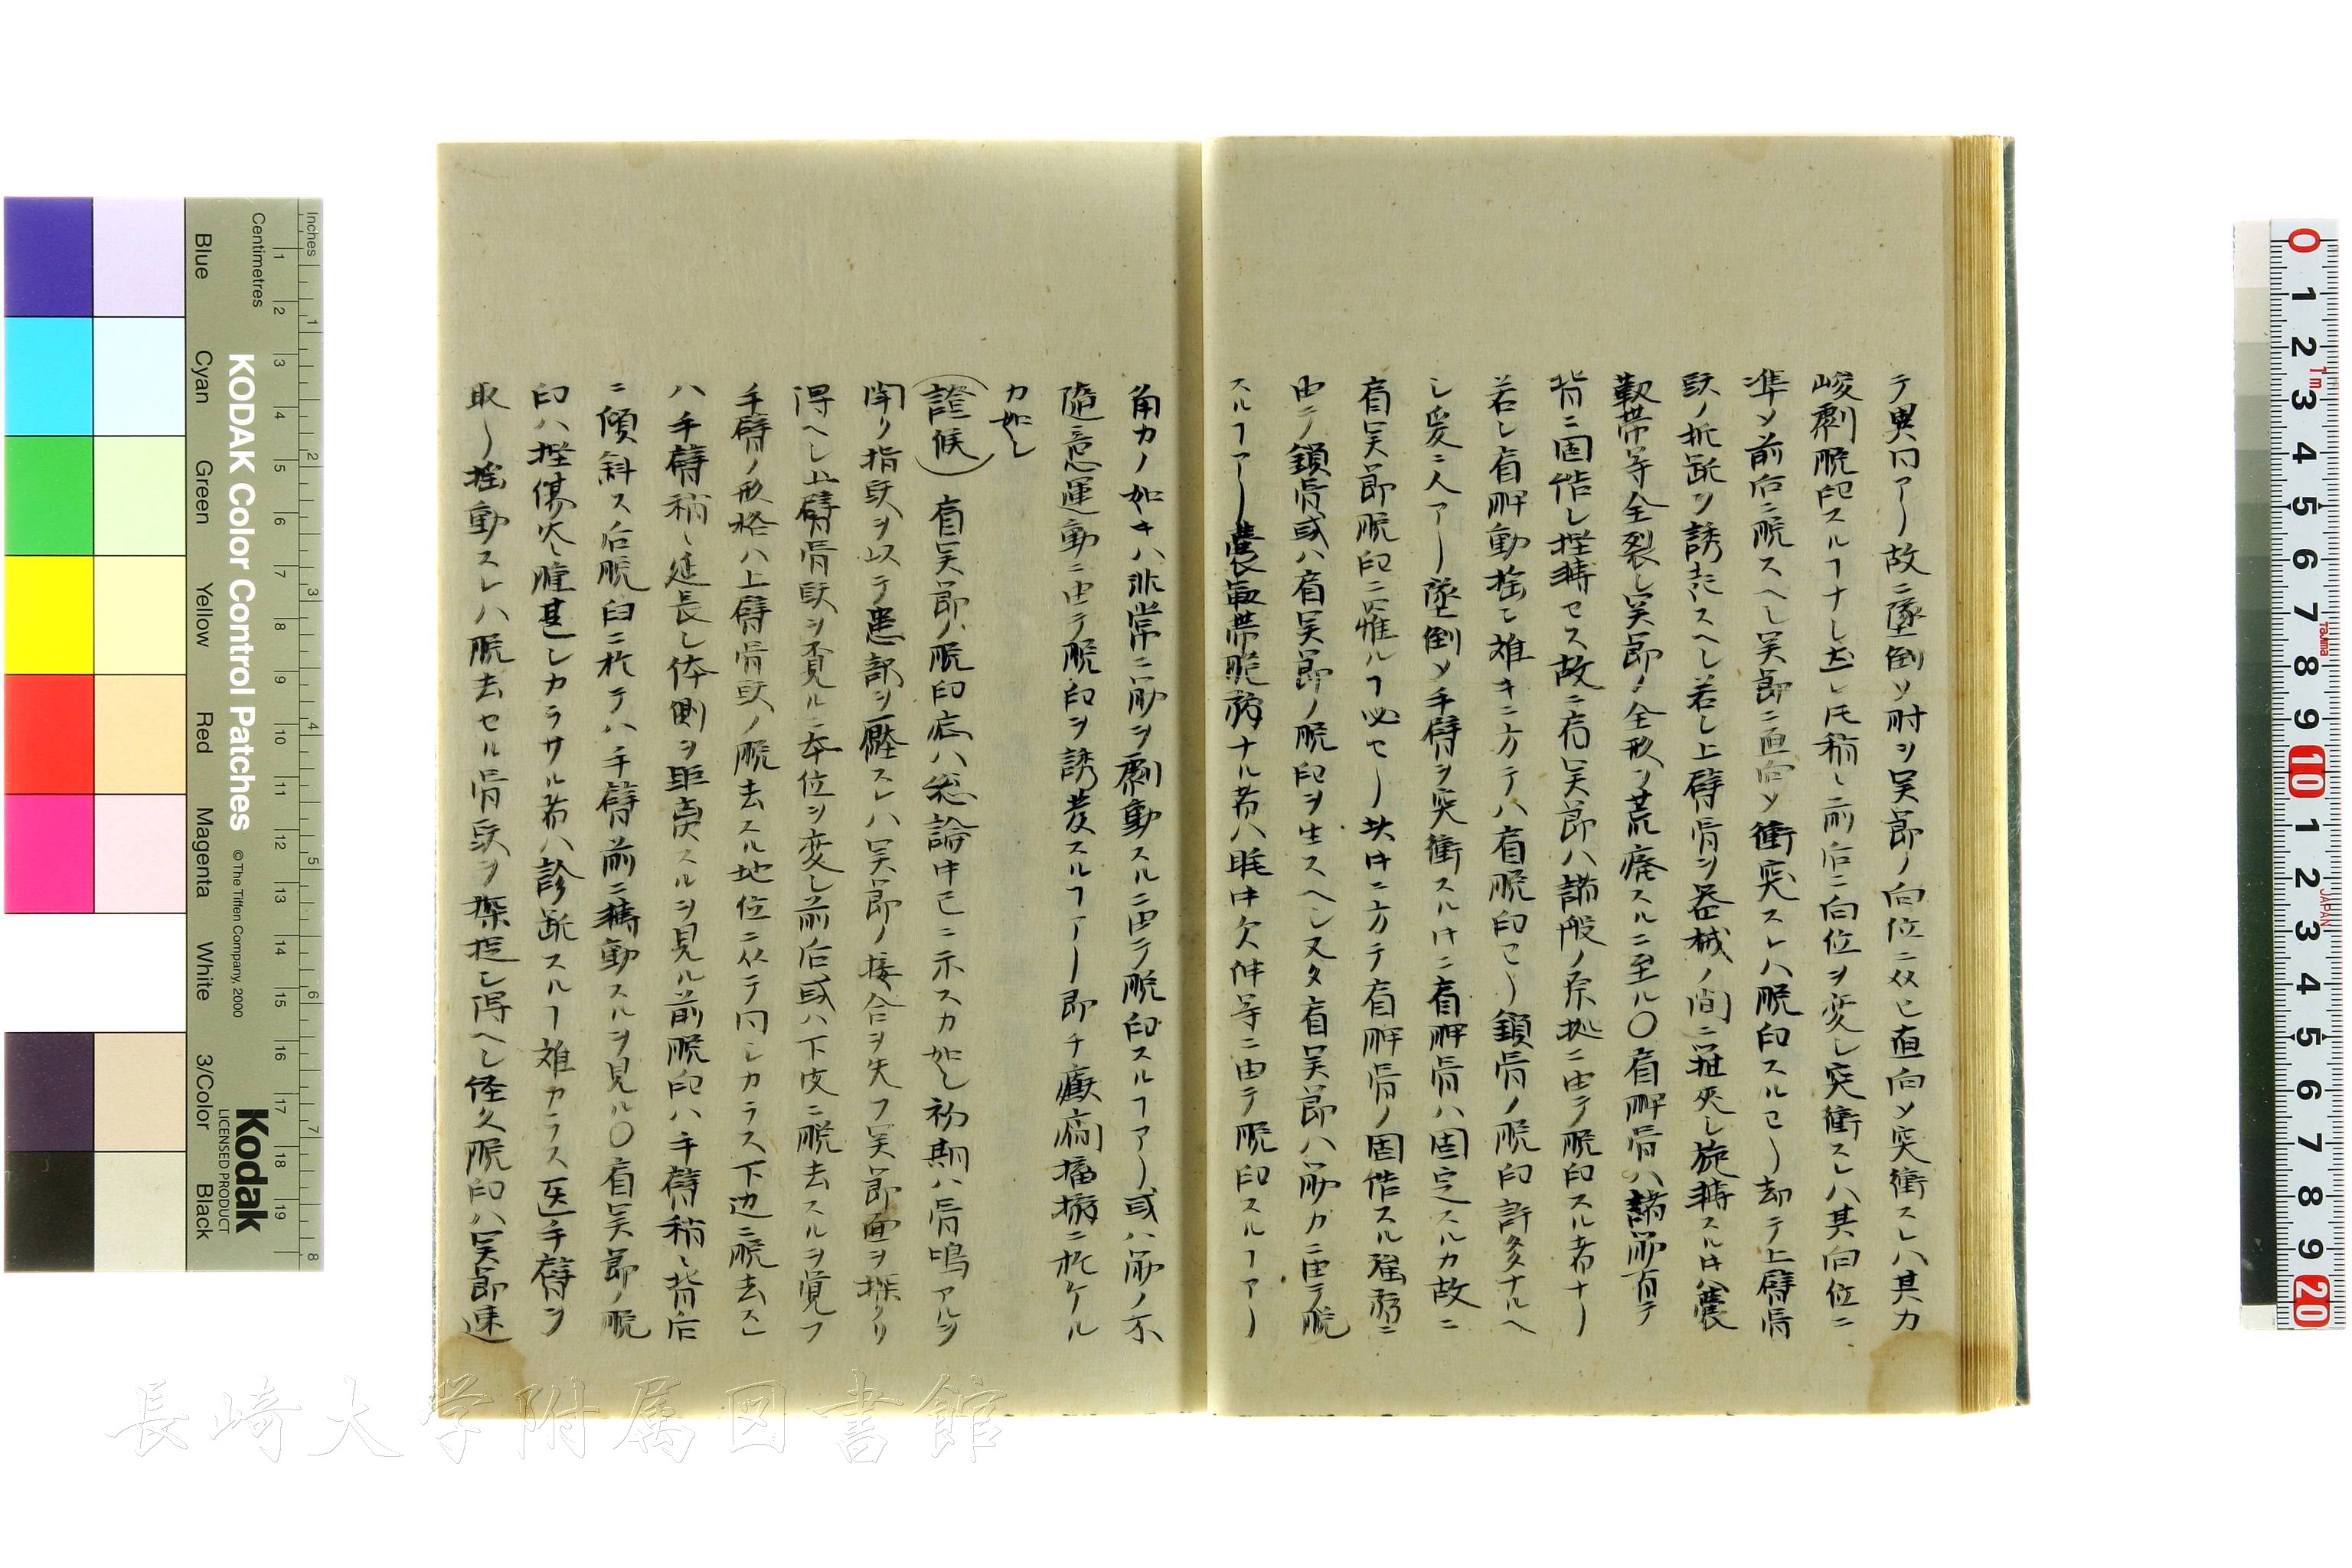 テ異同アヿ故ニ墜倒ソ肘ヲ関節ノ向位ニ双ヒ直向ソ突衝スレハ其力
峻劇脱臼スルヿナシ然レ𪜈稍々前后ニ向位ヲ変シ突衝スレハ其向位ニ
準ソ前后ニ脱スヘシ関節ニ直向ソ衝突スレハ脱臼スルヿ却テ上臂骨
頭ノ折断ヲ誘起スヘシ若シ上臂骨ヲ器械ノ間ニ挫夾シ旋轉スル𪜈囊
靱帯等全裂シ関節ノ全形ヲ荒廃スルニ至ル〇肩胛骨ハ諸筋有テ
背ニ固作シ捏轉セス故ニ肩関節ハ諸般ノ原拠ニ由テ脱臼スル者ナヿ
若シ肩胛動揺シ難キニ方テハ肩脱臼ヿ鎖骨ノ脱臼許多ナルヘ
シ爰ニ人アヿ墜倒ソ手臂ヲ突衝スル𪜈ニ肩胛骨ハ固定スルカ故ニ
肩関節脱臼ニ罹ルヿ必セヿ此𪜈ニ方テ肩胛骨ノ固作スル強弱ニ
由テ鎖骨或ハ肩関節ノ脱臼ヲ生スヘシ又タ肩関節ハ筋力ニ由テ脱
スルヿアヿ囊靱帯脆弱ナル者ハ眠中欠伸等ニ由テ脱臼スルヿアヿ
角力ノ如キハ非常ニ筋ヲ劇動スルニ由テ脱臼スルヿアヿ或ハ筋ノ不
随意運動ニ由テ脱臼ヲ誘發スルヿアヿ即チ癲癇搐搦ニ於ケル
カ如シ
(證候)肩関節ノ脱臼症ハ総論中已ニ示スカ如シ初期ハ骨鳴アルヲ
聞リ指頭ヲ以テ患部ヲ壓スレハ関節ノ接合ヲ失フ関節面ヲ探リ
得ヘシ上臂骨頭ヲ覓ルニ本位ヲ変シ前后或ハ下皮ニ脱去スルヲ覚フ
手臂ノ形格ハ上臂骨頭ノ脱去スル地位ニ从テ同シカラス下辺ニ脱去ス
ハ手臂稍々延長シ体側ヲ距ルヲ見ル前脱臼ハ手臂稍々背后
ニ傾斜ス后脱臼ニ於テハ手臂前ニ轉動スルヲ見ル〇肩関節ノ脱
臼ハ捏傷火腫甚シカラサル者ハ診断スルヿ難カラス医手臂ヲ
取ヿ揺動スレハ脱去セル骨頭ヲ探捉シ得ヘシ経久脱臼ハ関節連
KODAK Color Control Patches
© The Tiffen Company, 2000
Kodak
LICENSED PRODUCT
Inches
Centimetres
Blue
Cyan
Green
Yellow
Red
Magenta
White
3/Color
Black
長崎大学附属図書館